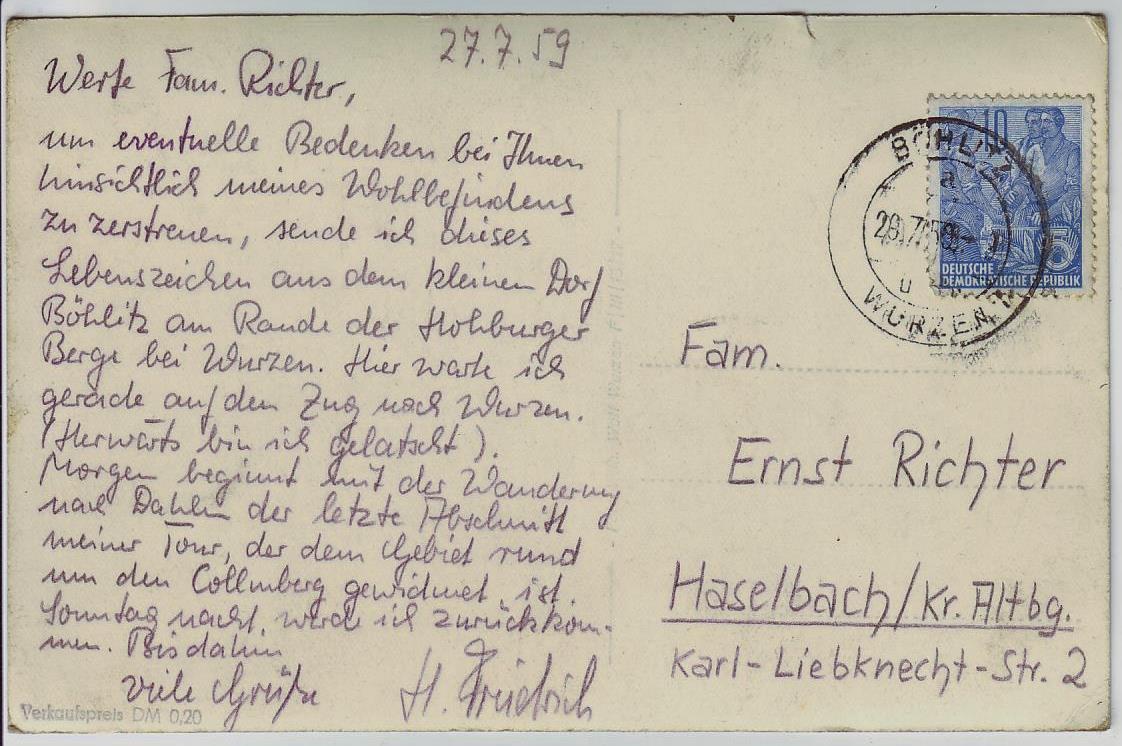 27.7.59
Werte Fam. Richter,
um eventuelle Bedenken bei Ihnen
hinsichtlich meines Wohlbefindens
zu zerstreuen, sende ich dieses
Lebenszeichen aus dem kleinen Dorf
Böhlitz am Rande der Hohburger
Berge bei Wurzen. Hier warte ich
gerade auf den Zug nach Wurzen.
(Herwärts bin ich gelatscht).
Morgen beginnt mit der Wanderung
nach Dahlen der letzte Abschnitt
meiner Tour, der dem Gebiet rund
um den Collmberg gewidmet ist.
Sonntag nacht werde ich zurückkom-
men. Bis dahin
viele Grüße H. Friedrich
Verkaufspreis DM 0,20
10
5
DEUTSCHE
DEMOKRATISCHE REPUBLIK
BÖHLITZ
a
ü
WURZEN
Fam.
Ernst Richter
Haselbach/Kr. Altbg.
Karl-Liebknecht-Str. 2